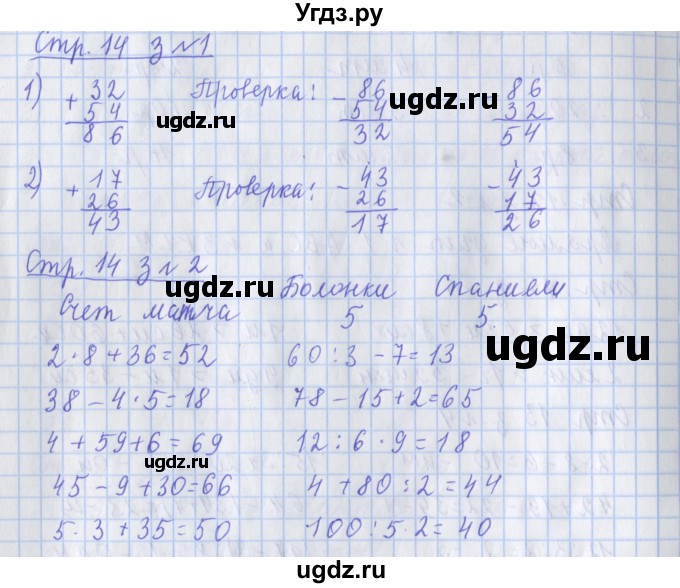 Угдз.ру
Стр. 14 з №1
1) + 32 Проверка: - 86 - 86
54 54 32
86 32 54
2) + 17 Проверка: - 43 - 43
26 26 17
43 17 26
Стр. 14 з № 2
Счет матча Болонки Спаниели
5 5
2·8+36=52 60:3-7=13
38-4·5=18 78-15+2=65
4+59+6=69 12:6·9=18
45-9+30=66 4+80:2=44
5·3+35=50 100:5·2=40
ugdz.ru
ugdz.ru
ugdz.ru
ugdz.ru
ugdz.ru
ugdz.ru
ugdz.ru
ugdz.ru
ugdz.ru